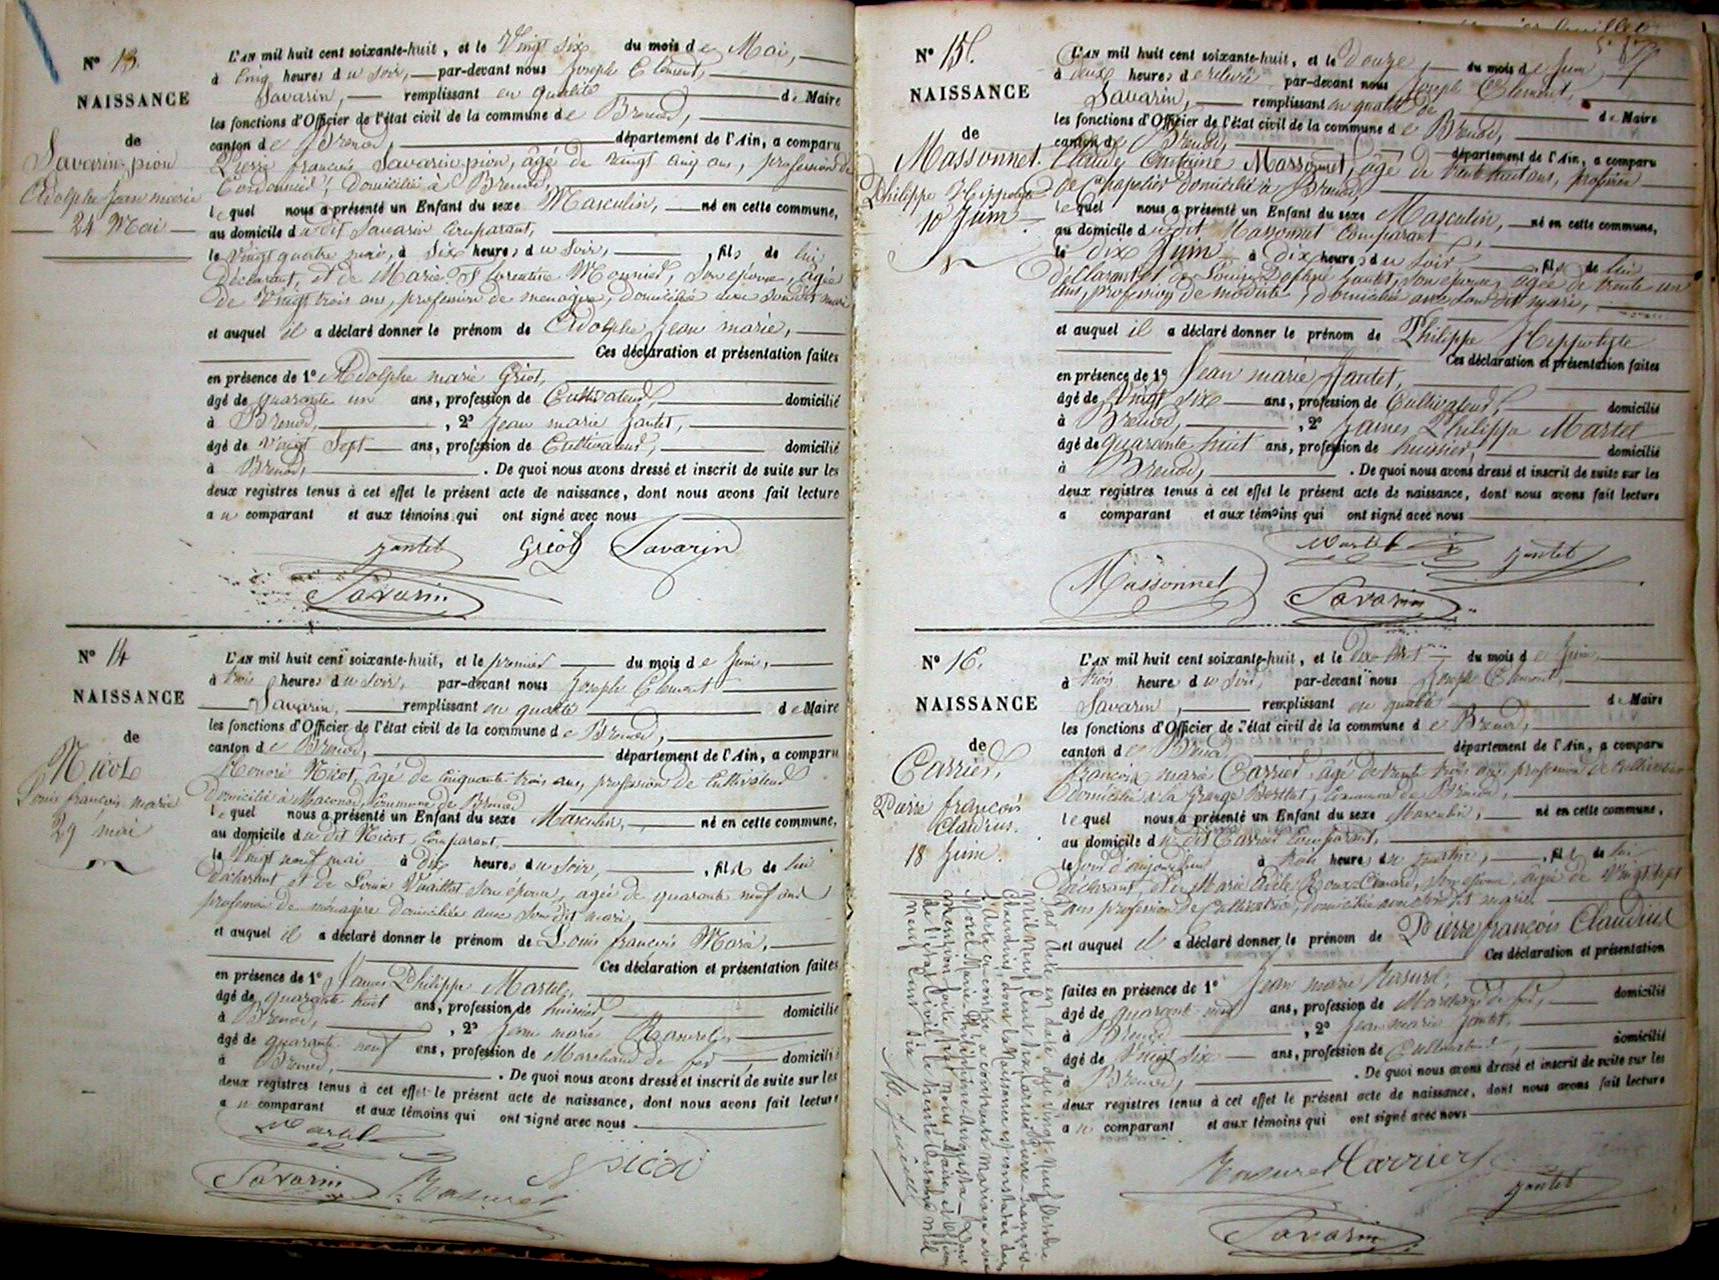 N° 13.
NAISSANCE
de
Savarin-pion
Adolphe Jean marie
24 Mai
L'AN mil huit cent soixante-huit, et le Vingt six du mois de Mai,
à Cinq heures du soir, par-devant nous Joseph Clément,
Savarin, remplissant en qualité de Maire
les fonctions d'Officier de l'état civil de la commune de Brenod,
canton de Brenod, département de l'Ain, a comparu
Pierre françois Savarin-pion, âgé de vingt cinq ans, profession de
Cordonnier, Domicilié à Brenod,
lequel nous a présenté un Enfant du sexe Masculin, né en cette commune,
au domicile du dit Savarin Comparant,
le Vingt quatre mai, à Six heures du Soir, fils de lui
Déclarant, et de Marie Florentine Monnier, Son épouse, âgée
de Vingt trois ans, profession de menagère, domiciliée avec son dit mari
et auquel il a déclaré donner le prénom de Adolphe Jean marie,
Ces déclaration et présentation faites
en présence de 1° Adolphe marie Griot,
âgé de quarante un ans, profession de Cultivateur, domicilié
à Brenod, 2° Jean marie Jantet,
âgé de vingt Sept ans, profession de Cultivateur, domicilié
à Brenod, . De quoi nous avons dressé et inscrit de suite sur les
deux registres tenus à cet effet le présent acte de naissance, dont nous avons fait lecture
au comparant et aux témoins qui ont signé avec nous
Jantet Griot Savarin
Savarin
N° 14
NAISSANCE
de
Nicot
Louis françois marie
29 mai
L'AN mil huit cent soixante-huit, et le premier du mois de Juin,
à trois heures du soir, par-devant nous Joseph Clément
Savarin, remplissant en qualité de Maire
les fonctions d'Officier de l'état civil de la commune de Brenod,
canton de Brenod, département de l'Ain, a comparu
Honoré Nicot, âgé de Cinquante trois ans, profession de Cultivateur
domicilié à Maconod, Commune de Brenod
lequel nous a présenté un Enfant du sexe Masculin, né en cette commune,
au domicile du dit Nicot, Comparant,
le Vingt neuf mai à dix heures du Soir, fils de lui
déclarant et de Louise Vuaillat son épouse, agée de quarante neuf ans
profession de ménagère domiciliée avec Son dit mari,
et auquel il a déclaré donner le prénom de Louis françois Marie,
Ces déclaration et présentation faites
en présence de 1° James Philippe Martel,
âgé de quarante huit ans, profession de huissier, domicilié
à Brenod, 2° Jean marie Rasurel,
âgé de quarante neuf ans, profession de Marchand de fer, domicilié
à Brenod, . De quoi nous avons dressé et inscrit de suite sur les
deux registres tenus à cet effet le présent acte de naissance, dont nous avons fait lecture
au comparant et aux témoins qui ont signé avec nous
Martel
Savarin Rasurel Nicot
N° 15.
NAISSANCE
de
Massonnet.
Philippe Hippolyte
10 Juin.
L'AN mil huit cent soixante-huit, et le douze, du mois de Juin,
à deux heures de relevé par-devant nous Joseph Clément,
Savarin, remplissant en qualité de de Maire
les fonctions d'Officier de l'état civil de la commune de Brenod,
canton de Brenod, département de l'Ain, a comparu
Claude Antoine Massonnet, âgé de trente huit ans, profession
de Chapelier domicilié à Brenod,
lequel nous a présenté un Enfant du sexe Masculin, né en cette commune,
au domicile du dit Massonnet Comparant,
le dix Juin à dix heures du soir, fils de lui
déclarant et de Louise Daphné Jantet, son épouse, agée de trente un
ans, profession de modiste, domiciliée avec son dit mari,
et auquel il a déclaré donner le prénom de Philippe Hippolyte
Ces déclaration et présentation faites
en présence de 1° Jean marie Jantet,
âgé de Vingt Six ans, profession de Cultivateur, domicilié
à Brenod, 2° James Philippe Martel
âgé de quarante huit ans, profession de huissier, domicilié
à Brenod, . De quoi nous avons dressé et inscrit de suite sur les
deux registres tenus à cet effet le présent acte de naissance, dont nous avons fait lecture
a comparant et aux témoins qui ont signé avec nous
Martel Jantet
Massonnet Savarin
N° 16.
NAISSANCE
de
Carrier,
Pierre françois
Claudius.
18 Juin.
L'AN mil huit cent soixante-huit, et le dix huit du mois de Juin,
à trois heures du Soir, par-devant nous Joseph Clément,
Savarin, remplissant en qualité de Maire
les fonctions d'Officier de l'état civil de la commune de Brenod,
canton de Brenod, département de l'Ain, a comparu
françois marie Carrier, âgé de trente trois ans, profession de Cultivateur
domicilié à la Grange Berthet, Commune de Brenod,
lequel nous a présenté un Enfant du sexe Masculin, né en cette commune,
au domicile du dit Carrier Comparant,
le jour d'aujourd'hui à trois heures du matin, fils de lui
déclarant, et de Marie Adèle Son épouse, agée de Vingt Sept
ans profession de Cultivatrice, domiciliée avec son dit marie
et auquel il a déclaré donner le prénom de Pierre françois Claudius
Ces déclaration et présentation
faites en présence de 1° Jean marie Rasurel,
âgé de quarante neuf ans, profession de Marchand de fer, domicilié
à Brenod 2° Jean marie Jantet,
âgé de Vingt Six ans, profession de Cultivateur, domicilié
à Brenod, . De quoi nous avons dressé et inscrit de suite sur les
deux registres tenus à cet effet le présent acte de naissance, dont nous avons fait lecture
au comparant et aux témoins qui ont signé avec nous
Rasurel Carrier
Jantet
Savarin
Par acte en date du vingt-neuf
mil neuf cent six, Carrier Pierre-François-
Claudius dont la Naissance est constatée dans
l'acte ci-contre a contracté mariage avec
mention faite par nous, Maire et Officier
de l'état civil le trente mil
neuf cent six